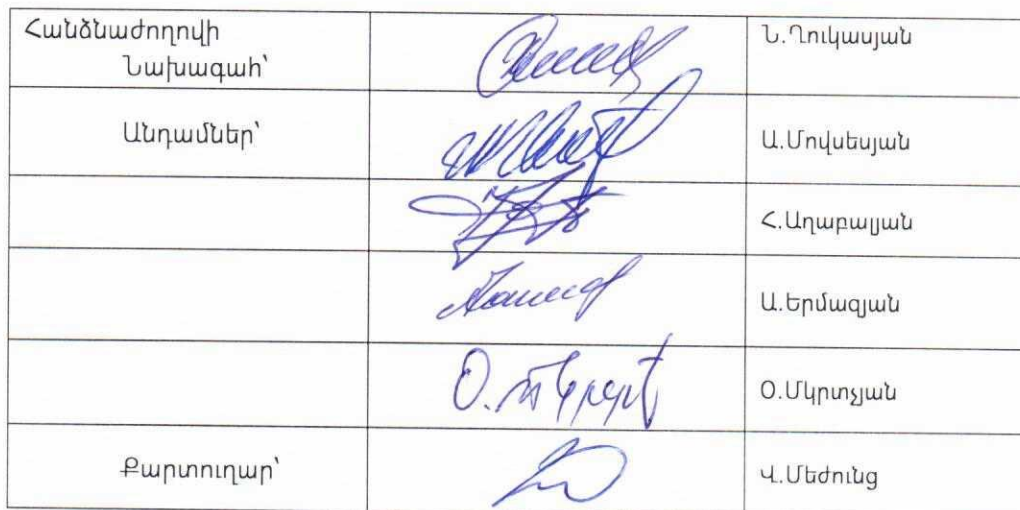 Հանձնաժողովի
Նախագահ՝
Ն.Ղուկասյան
Անդամներ՝
Ա.Մովսեսյան
Հ.Աղաբալյան
Ա.Երմազյան
Օ.Մկրտչյան
Քարտուղար՝
Վ.Մեժունց